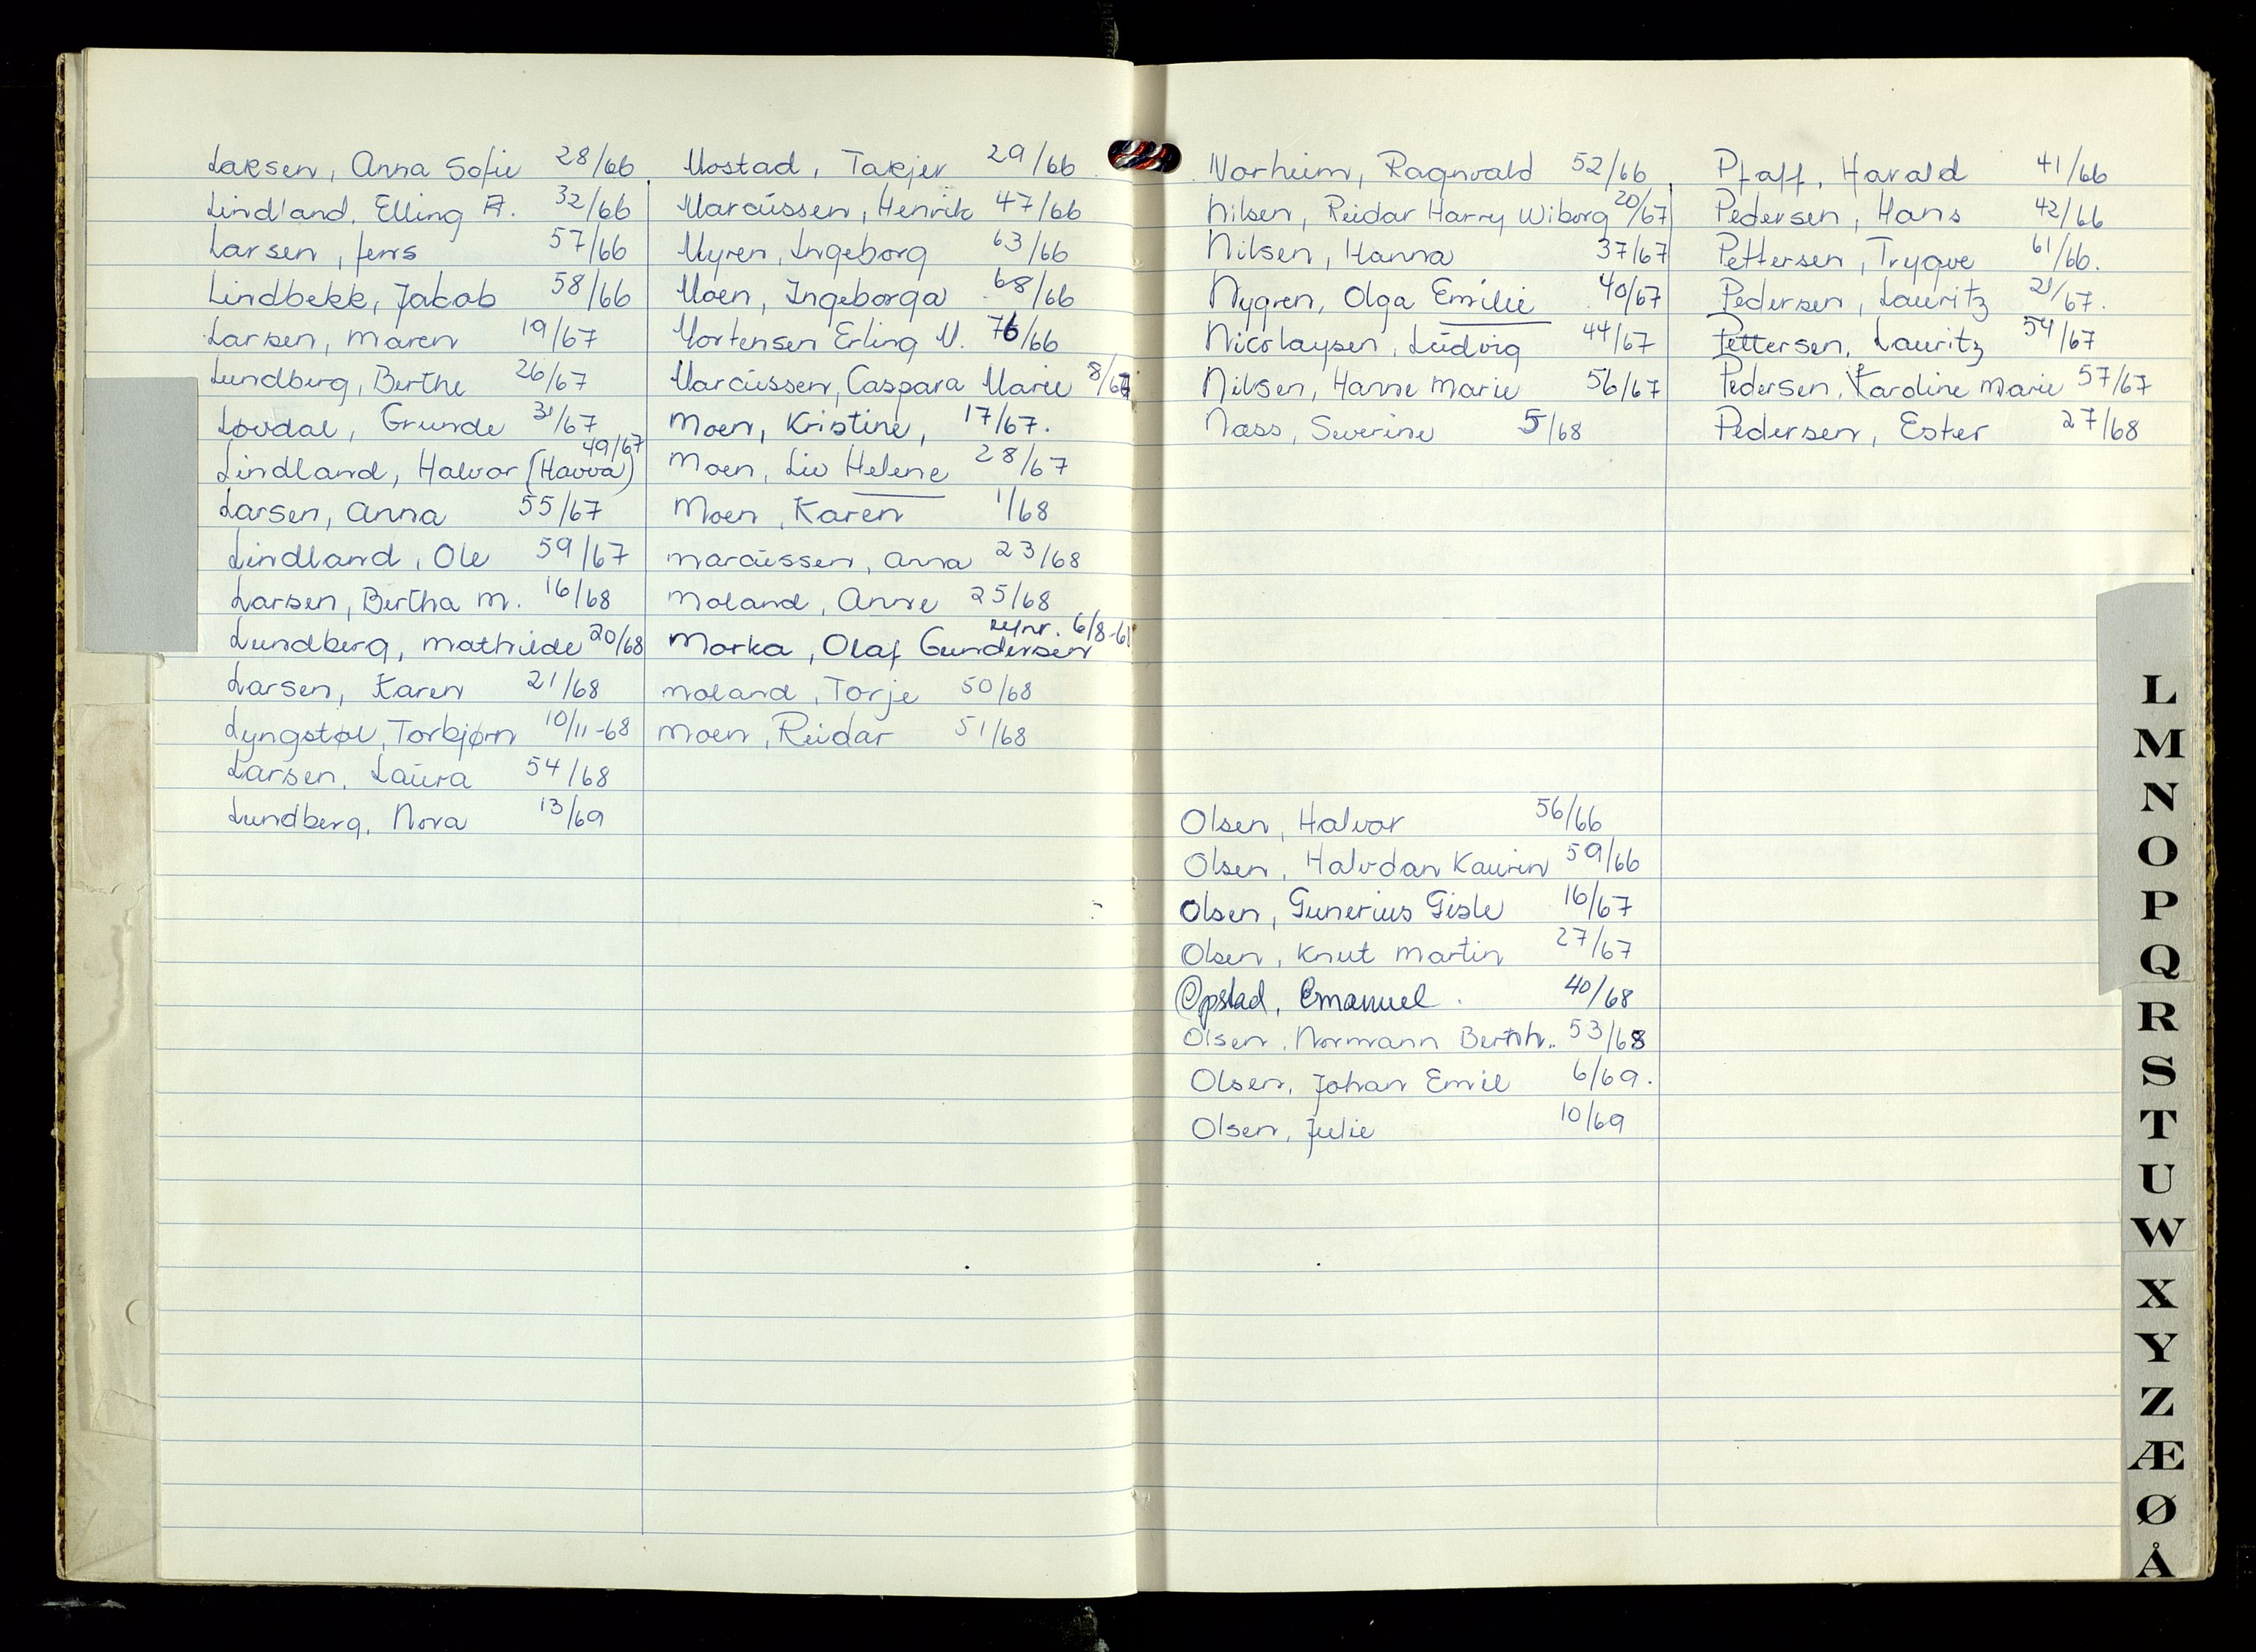 Larsen, Anna Sofie 28/66
Lindland, Elling A. 32/66
Larsen, Jens 57/66
Lindbekk, Jakob 58/66
Larsen, Maren 19/67
Lundberg, Berthe 26/67
Løvdal, Grunde 31/67
49/67
Lindland, Halvor (Havva)
Larsen, Anna 55/67
Lindland, Ole 59/67
Larsen, Bertha M. 16/68
Lundberg, Mathilde 20/68
Larsen, Karen 21/68
Lyngstøl, Torbjørn 10/11-68
Larsen, Laura 54/68
Lundberg, Nora 13/69
Mostad, Takjer 29/66
Marcussen, Henrik 47/66
Myren, Ingeborg 63/66
Moen, Ingeborga 68/66
Mortensen Erling M. 76/66
Marcussen, Caspara Marie 8/67
Moen, Kristine, 17/67.
Moen, Liv Helene 28/67
Moen, Karen 1/68
Marcussen, Anna 23/68
Moland, Anne 25/68
6/8-61
Morka, Olaf Gundersen
Moland, Torje 50/68
Moen, Reidar 51/68
Norheim, Ragnvald 52/66
Nilsen, Reidar Harry Wiborg 20/67
Nilsen, Hanna 37/67
Nygren, Olga Emilie 40/67
Nicolaysen, Ludvig 44/67
Nilsen, Hanne Marie 56/67
Næss, Severine 5/68
Olsen, Halvor 56/66
Olsen, Halvdan Kaurin 59/66
Olsen, Gunerius Gisle 16/67
Olsen, Knut Martin 27/67
Oppstad, Emanuel. 40/68
Olsen, Normann 53/68
Olsen, Johan Emil 6/69.
Olsen, Julie 10/69
Pfaff, Harald 41/66
Pedersen, Hans 42/66
Pettersen, Trygve 61/66.
Pedersen, Lauritz 21/67.
Pettersen, Lauritz 54/67
Pedersen, Karoline Marie 57/67
Pedersen, Ester 27/68
L
M
N
O
P
Q
R
S
T
U
W
X
Y
Z
Æ
Ø
Å